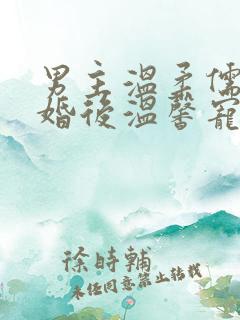 男主溫柔儒
婚後溫馨寵
徐時輔
未經同意禁止轉載